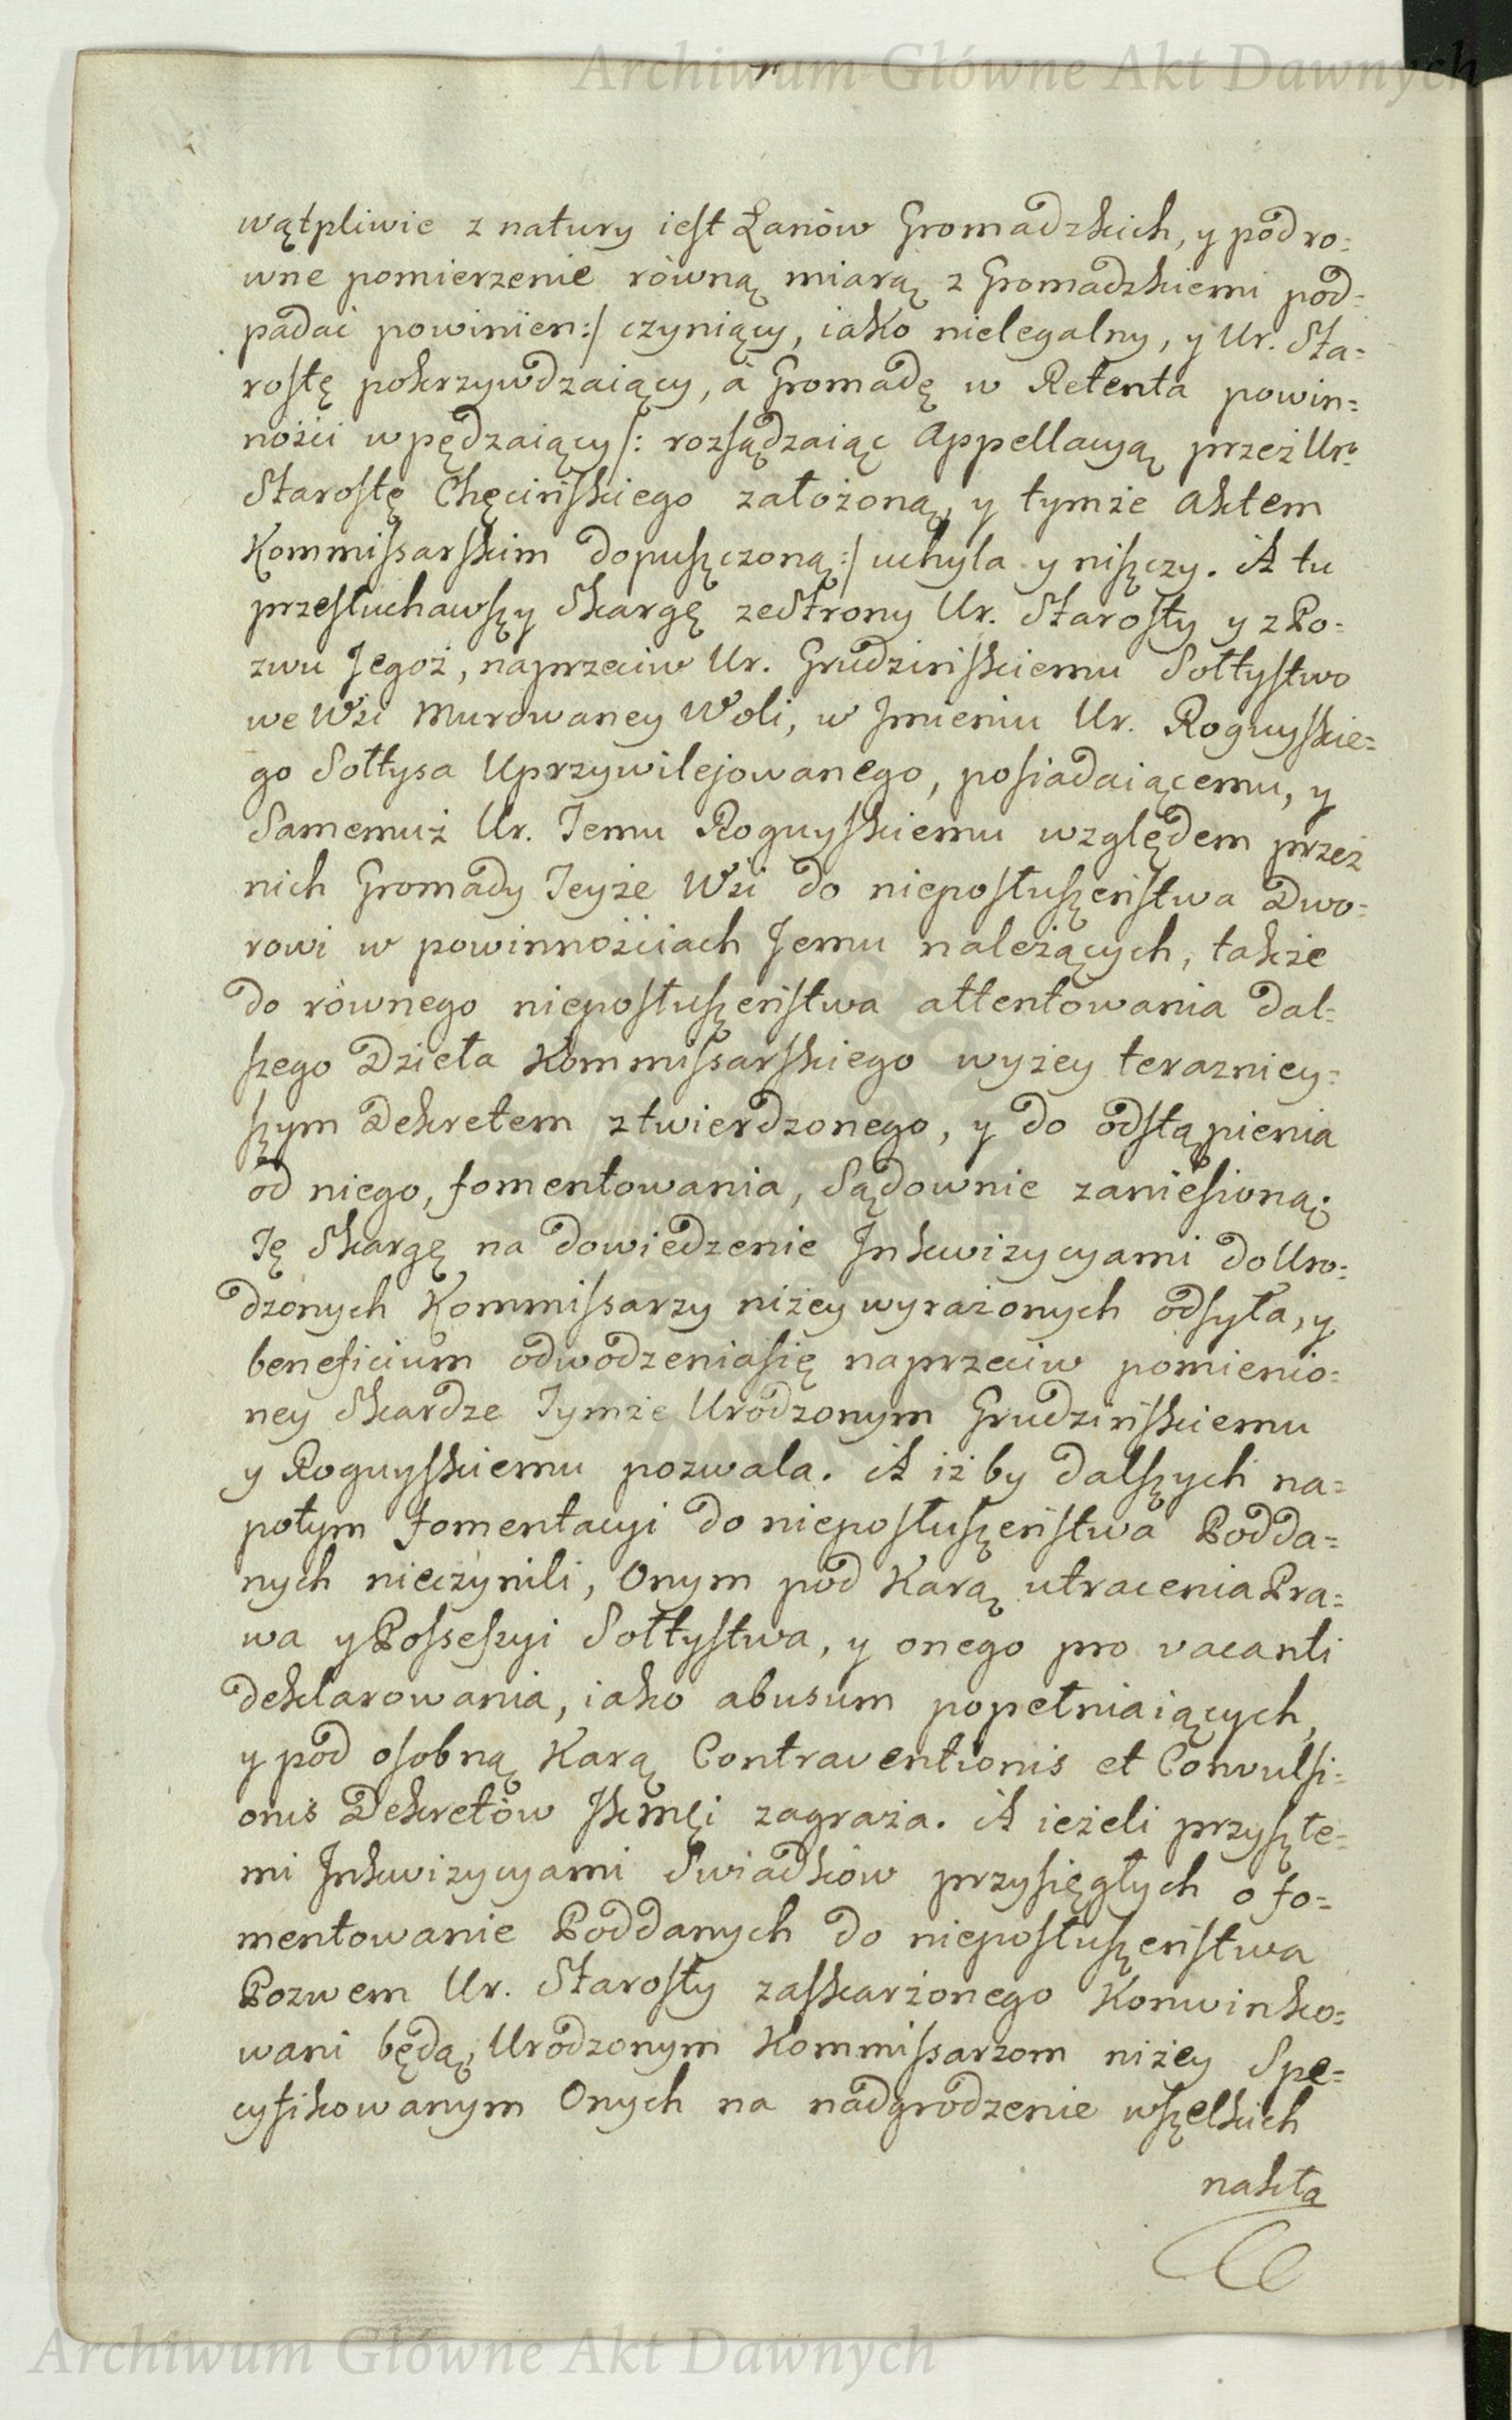 Archiwum Główne Akt Dawnych
wątpliwie z natury iest Łanów Gromadzkich, y pod ro=
wne pomierzenie równą miarą z Gromadzkiemi pod=
padać powinien:/ czyniący, iako nielegalny, y Ur. Sta=
rostę pokrzywdzaiący, à Gromadę w Retenta powin=
ności wpędzaiący/: rozsądzaiąc Appellacyą przez Ur.
Starostę Chęcińskiego założoną, y tymże aktem
Kommissarskim dopuszczoną:/ uchyla y niszczy. A tu
przesłuchawszy Skargę ze Strony Ur. Starosty y z Po=
zwu Jegoż, naprzeciw Ur. Grudzińskiemu Sołtystwo
we Wsi Murowaney Woli, w Jmieniu Ur. Roguyskie=
go Sołtysa Uprzywilejowanego, posiadaiącemu, y
Samemuż Ur. Temu Roguyskiemu względem przez
nich Gromady Teyże Wsi do nieposłuszeństwa Dwo=
rowi w powinnościach Jemu należących, także
do równego nieposłuszeństwa attentowania dal=
szego Dzieła Kommissarskiego wyżey terazniey=
szym Dekretem ztwierdzonego, y do odstąpienia
od niego, fomentowania, Sądownie zaniesioną;
Tę Skargę na dowiedzenie Jnkwizycyami do Uro=
dzonych Kommissarzy niżey wyrażonych odsyła, y
beneficium odwodzenia się naprzeciw pomienio=
ney Skardze Tymże Urodzonym Grudzińskiemu
y Roguyskiemu pozwala. A iżby dalszych na=
potym fomentacyi do nieposłuszeństwa Podda=
nych nieczynili, Onym pod Karą utracenia Pra=
wa y Possessyi Sołtystwa, y onego pro vacanti
deklarowania, iako abusum popełniaiących,
y pod osobną Karą Contraventionis et Convulsi=
onis Dekretów Jkmći zagraża. A ieżeli przyszłe=
mi Jnkwizycyami Swiadków przysięgłych o fo=
mentowanie Poddanych do nieposłuszeństwa
Pozwem Ur. Starosty zaskarżonego Konwinko=
wani będą, Urodzonym Kommissarzom niżey Spe=
cyfikowanym Onych na nadgrodzenie wszelkich
nakła
Archiwum Główne Akt Dawnych